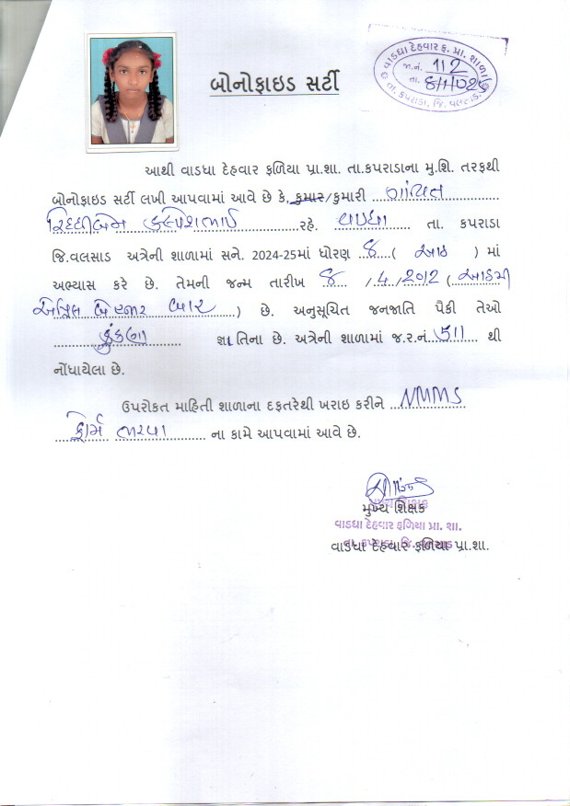 વાડધા દેહવાર ફ. પ્રા. શાળા
જા.નં. 112
તા.
તા. કપરાડા, જિ. વલસાડ
બોનોફાઇડ સર્ટી
આથી વાડધા દેહવાર ફળિયા પ્રા.શા. તા.કપરાડાના મુ.શિ. તરફથી
બોનોફાઇડ સર્ટી લખી આપવામાં આવે છે કે, કુમાર/કુમારી ગાંવિત
રિદ્ધીબેન કલ્પેશભાઈ રહે. વાડધા તા. કપરાડા
જિ.વલસાડ અત્રેની શાળામાં સને. 2024-25માં ધોરણ ૪ ( આઠ ) માં
અભ્યાસ કરે છે. તેમની જન્મ તારીખ ૪ /.4./2012 ( આઠમી
એપ્રિલ બે હજાર બાર ) છે. અનુસૂચિત જનજાતિ પૈકી તેઓ
કુંકણા જ્ઞાતિના છે. અત્રેની શાળામાં જ.ર.નં. 511 થી
નોંધાયેલા છે.
ઉપરોકત માહિતી શાળાના દફતરેથી ખરાઇ કરીને NMMS
ફોર્મ ભરવા ના કામે આપવામાં આવે છે.
મુખ્ય શિક્ષક
વાડધા દેહવાર ફળિયા પ્રા. શા.
તા. કપરાડા જિ. વલસાડ
વાડધા દેહવાર ફળિયા પ્રા.શા.